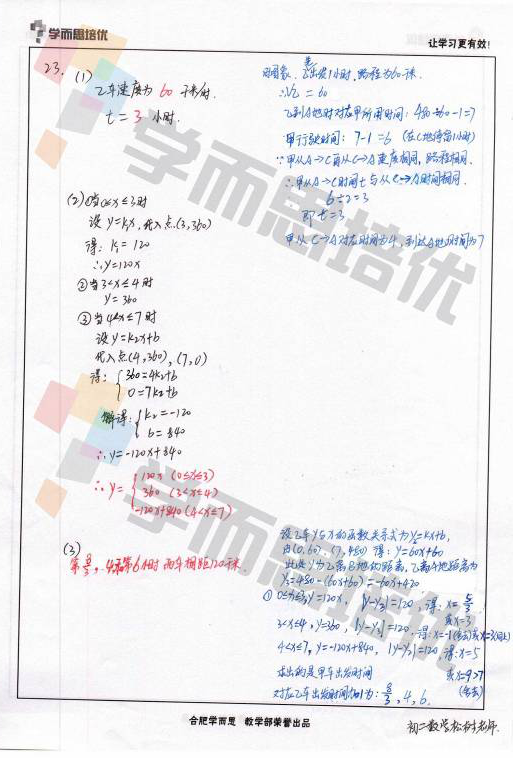 学而思培优
让学习更有效!
23. (1)
乙车速度为 60 千米/时.
t = 3 小时.
(2) ①当0≤x≤3时
设 y=k₁x, 代入点(3,360)
得: k₁ = 120
∴y=120x
②当3<x≤4时
y=360
③当4<x≤7时
设y=k₂x+b
代入点(4,360), (7,0)
得: { 360=4k₂+b
0=7k₂+b
解得: { k₂=-120
b=840
∴y=-120x+840
∴ y= { 120x (0≤x≤3)
360 (3<x≤4)
-120x+840 (4<x≤7)
(3)
第 8/3, 4 第6小时 两车相距120千米.
由图象, 乙先出发1小时, 路程为60千米.
∴V乙 = 60
乙到A地时对应甲所用时间: 480÷60-1=7
甲行驶时间: 7-1=6 (在C地停留1小时)
∵甲从A→C再从C→A速度相同, 路程相同.
∴甲从A→C时间t与从C→A时间相同.
6÷2=3
即 t=3
甲从C→A对应时间为4, 到达A地时间为7
设乙车y与x的函数关系式为y₂=kx+b,
由(0,60), (7,480) 得: y=60x+60
此时y为乙离B地的距离, 乙离A地距离为
y₂=480-(60x+60)=-60x+420
① 0≤x≤3, y=120x, |y-y₂|=120, 得: x=5/3
或x=3
3<x≤4, y=360, |y-y₂|=120, 得: x=-1(舍去)或x=3(同上)
4<x≤7, y=-120x+840, |y-y₂|=120 得: x=5
或x=9>7
(舍去)
求出的是甲车出发时间
对应乙车出发时间分别为: 8/3, 4, 6.
合肥学而思 教学部荣誉出品
初二数学 老师.